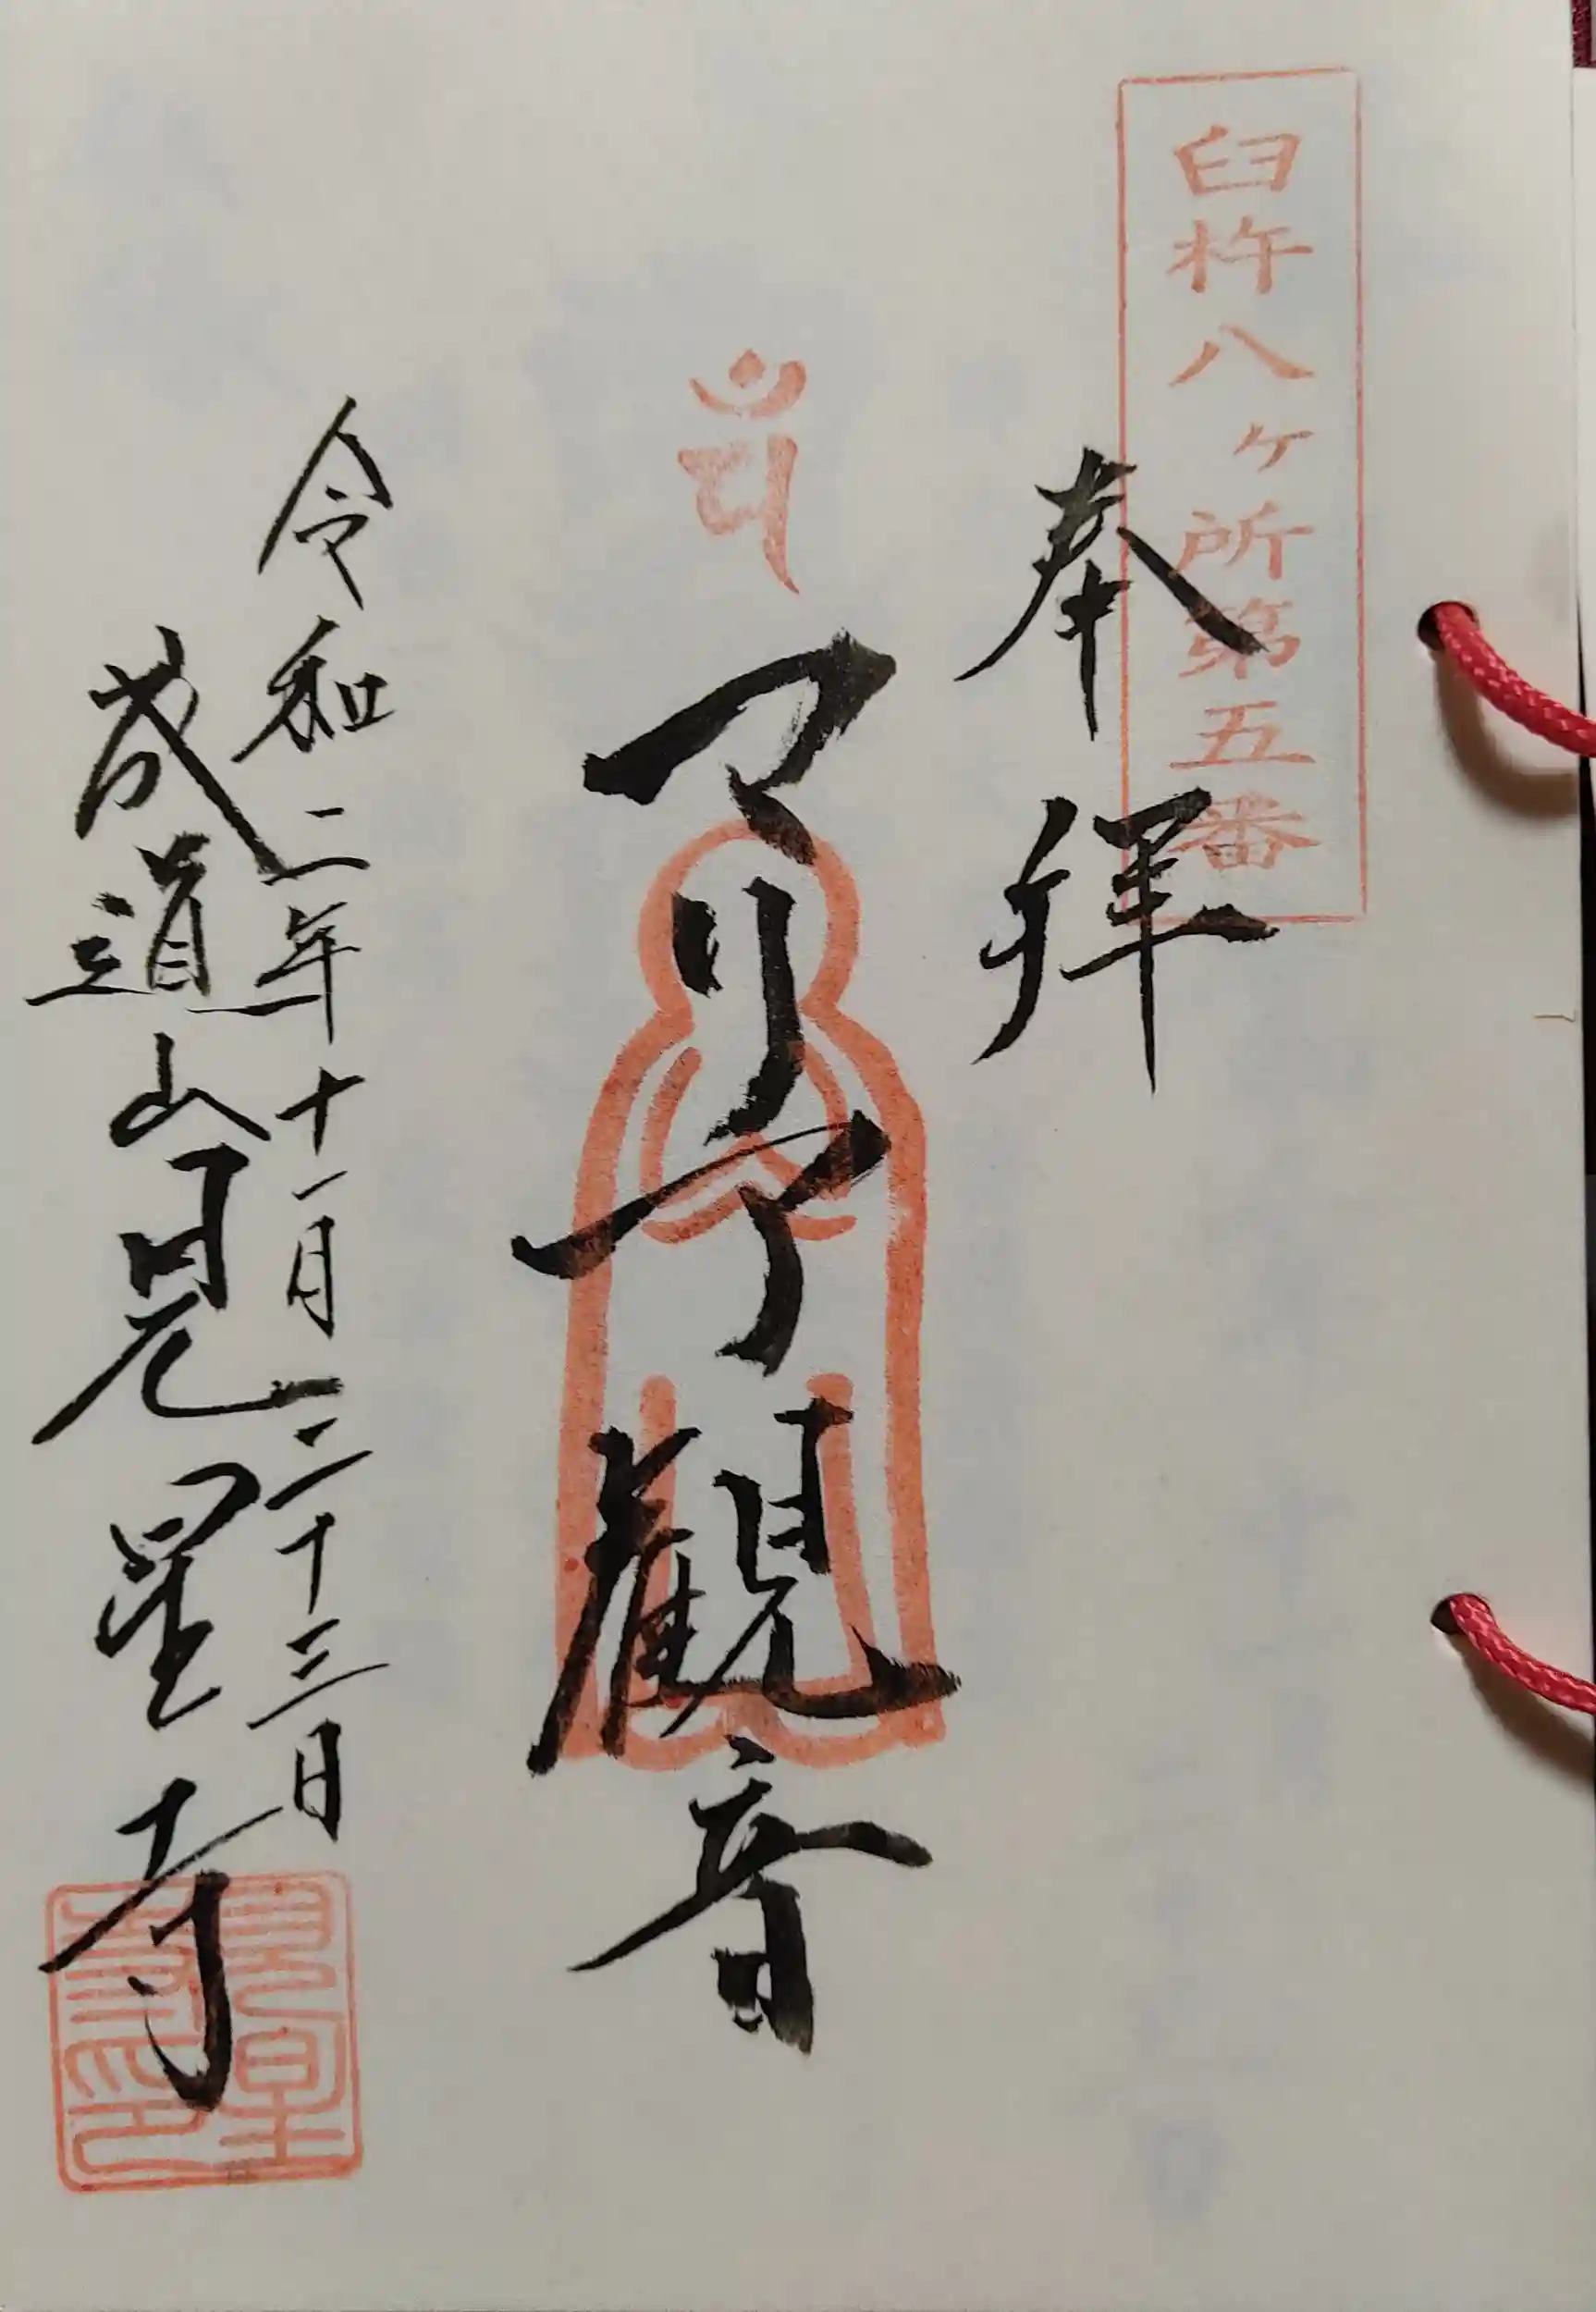 臼杵八ヶ所第五番
奉拝
マリア観音
令和二年十一月二十三日
成道山見星寺
見星
寺印